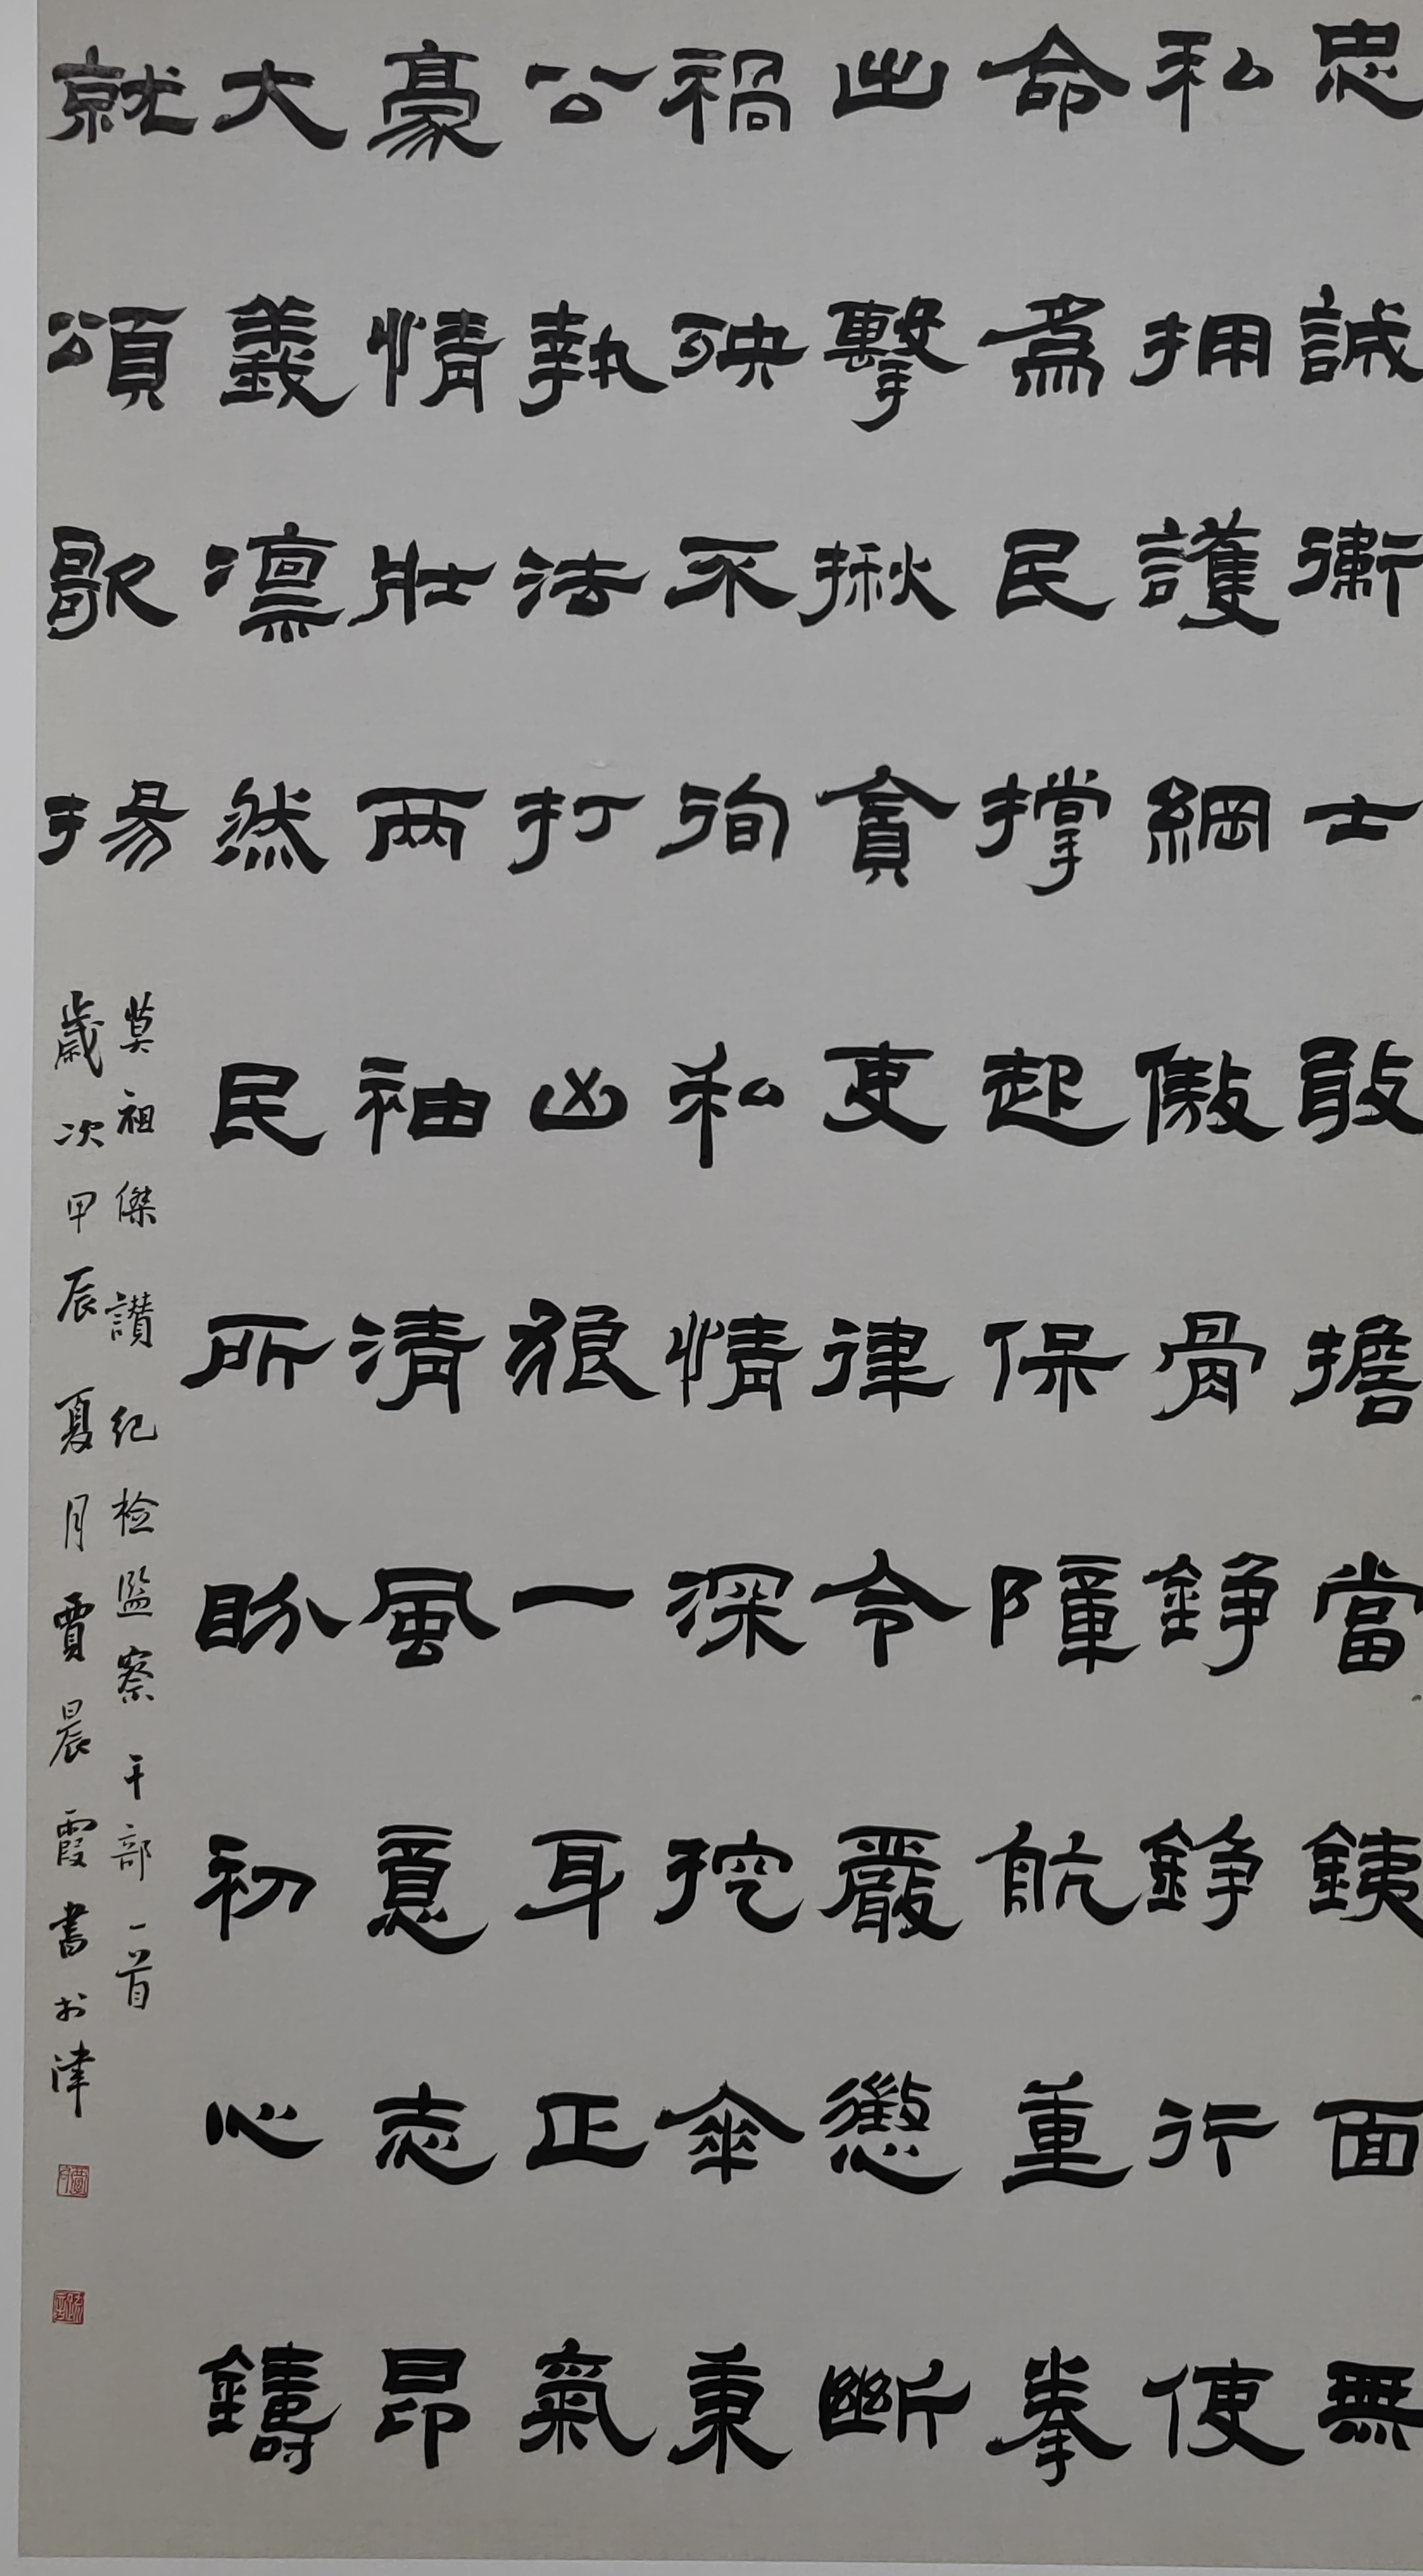 忠誠衛士敢擔當鐵面無
私拥護綱儌骨錚錚行使
命為民撐起保障航重拳
出擊揪貪吏律令嚴懲斷
禍殃不徇私情深挖傘秉
公執法打凶狠一耳正氣
豪情壯两袖清風意志昂
大義凛然民所盼初心鑄
就頌歌扬
莫祖傑讃纪检監察干部一首
歲次甲辰夏月賈晨霞書於津